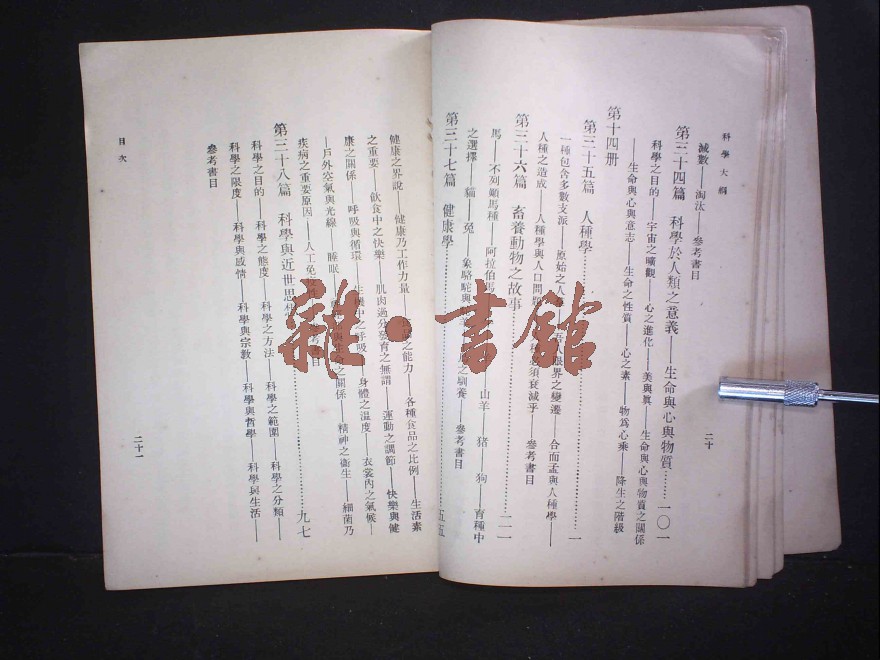 科學大綱
二十
減數——淘汰——參考書目
第三十四篇 科學於人類之意義——生命與心與物質……一〇一
科學之目的——宇宙之曠觀——心之進化——美與眞——生命與心與物質之關係
——生命與心與意志——生命之性質——心之素——物爲心乘——降生之階級
第十四册
第三十五篇 人種學……一
一種包含多數支派——原始之人 界之變遷——合而孟與人種學——
人種之造成——人種學與人口問題 須衰減乎——參考書目
第三十六篇 畜養動物之故事……二一
馬——不列顛馬種——阿拉伯馬 山羊——猪——狗——育種中
之選擇——貓——兎——象駱駝與 之馴養——參考書目
第三十七篇 健康學……五五
健康之界說——健康乃工作力量 之能力——各種食品之比例——生活素
之重要——飲食中之快樂——肌肉過分發育之無謂——運動之調節——快樂與健
康之關係——呼吸與循環——生 中之呼吸——身體之溫度——衣裳內之氣候—
—戶外空氣與光線——睡眠 之關係——精神之衞生——細菌乃
疾病之重要原因——人工免疫性 參考書目
第三十八篇 科學與近世思想……九七
科學之目的——科學之態度——科學之方法——科學之範圍——科學之分類——
科學之限度——科學與感情——科學與宗敎——科學與哲學——科學與生活——
參考書目
目次
二十一
雜·書館